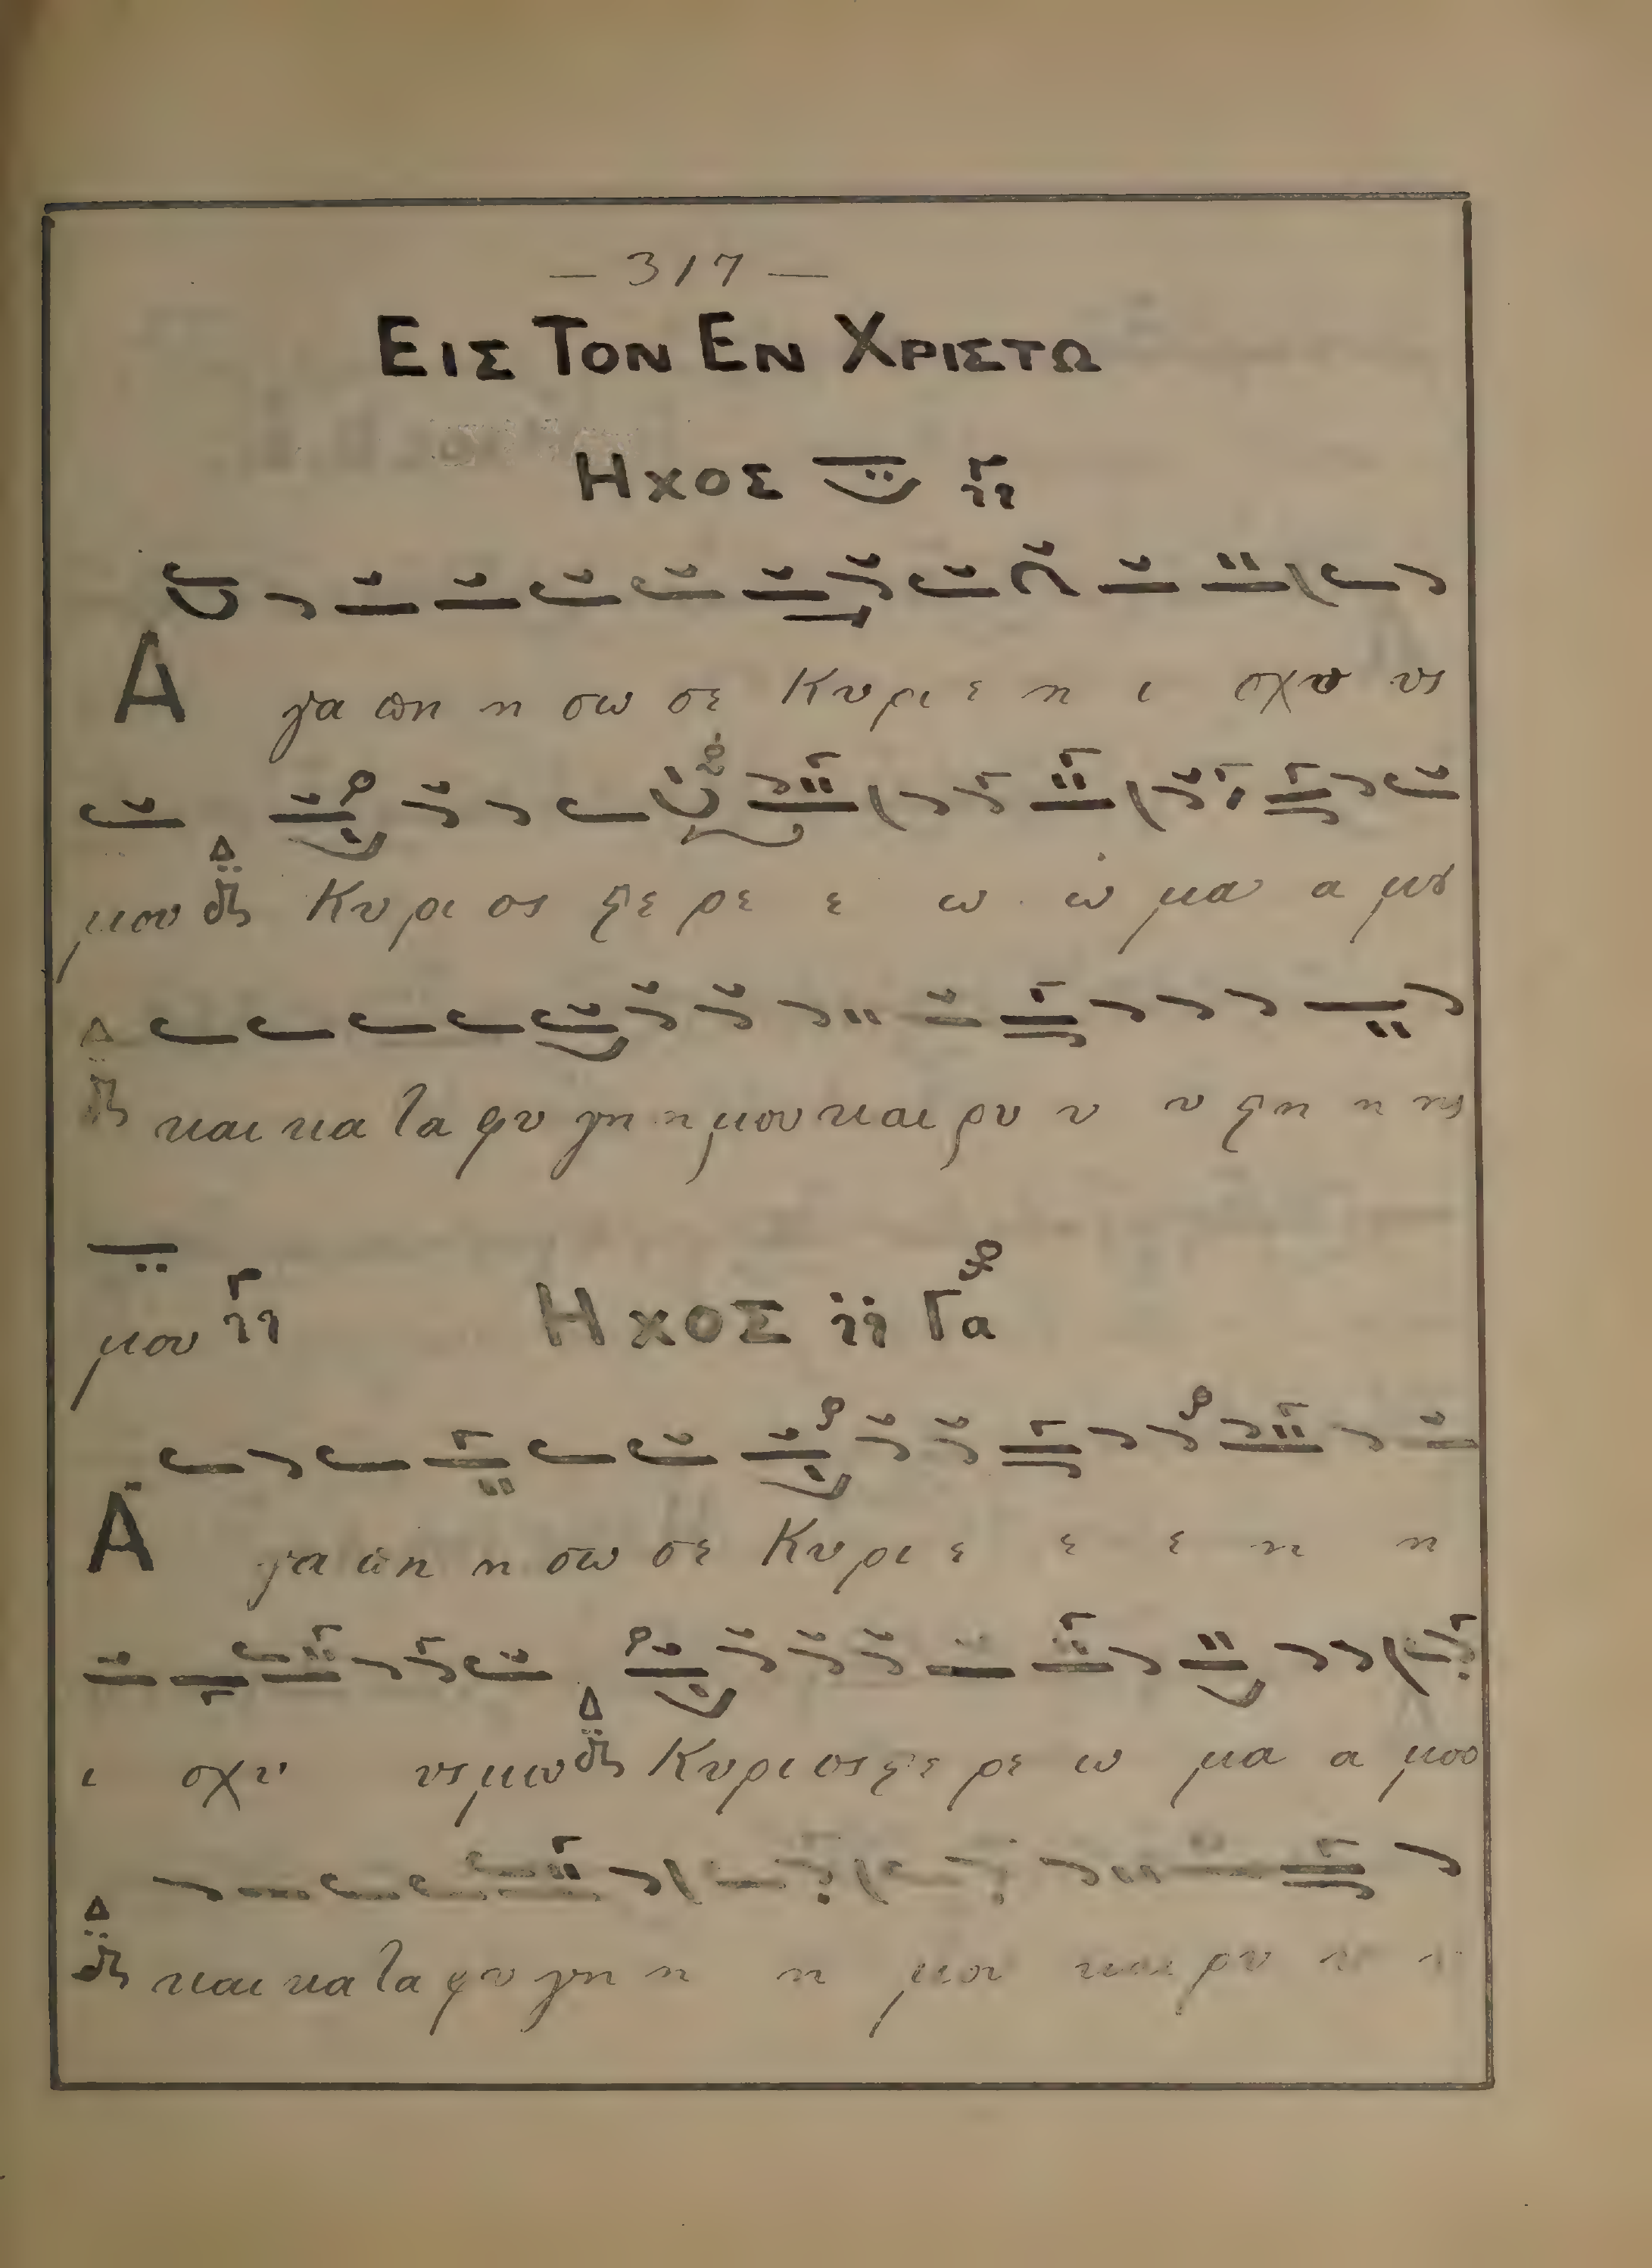 — 317 —
ΕΙΣ ΤΟΝ ΕΝ ΧΡΙΣΤΩ
ΗΧΟΣ
Α γα πη η σω σε Κυ ρι ε η ι σχυ υς
μου Κυ ρι ος ϛε ρε ε ω ω μα α μȣ
και κα τα φυ γη η μου και ρυ υ υ ϛη η ης
μου ΗΧΟΣ Γα
Α γα πη η σω σε Κυ ρι ε ε ε η η
ι σχυ υς μου Κυ ρι ος ϛε ρε ω μα α μου
και κα τα φυ γη η η μου και ρυ υ υ